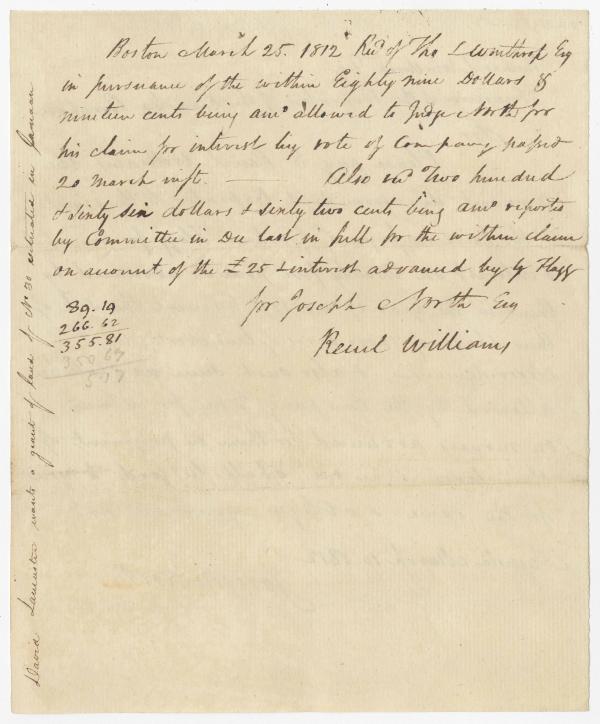 Boston March 25. 1812 Recd of Tho L Winthrop Esq
in pursuance of the within Eighty nine Dollars &
nineteen cents being amo allowed to Judge North for
his claim for interest by vote of Company passed
20 March inst. — Also recd Two hundred
& sixty six dollars & sixty two cents being amo reported
by Committee in Dec last in full for the within claim
on account of the £25 & interest advanced by G Flagg
for Joseph North Esq
Reuel Williams
89.19
266.62
355.81
350.64
5.17
David Lancaster wants a grant of land of No 30 situated in Canaan